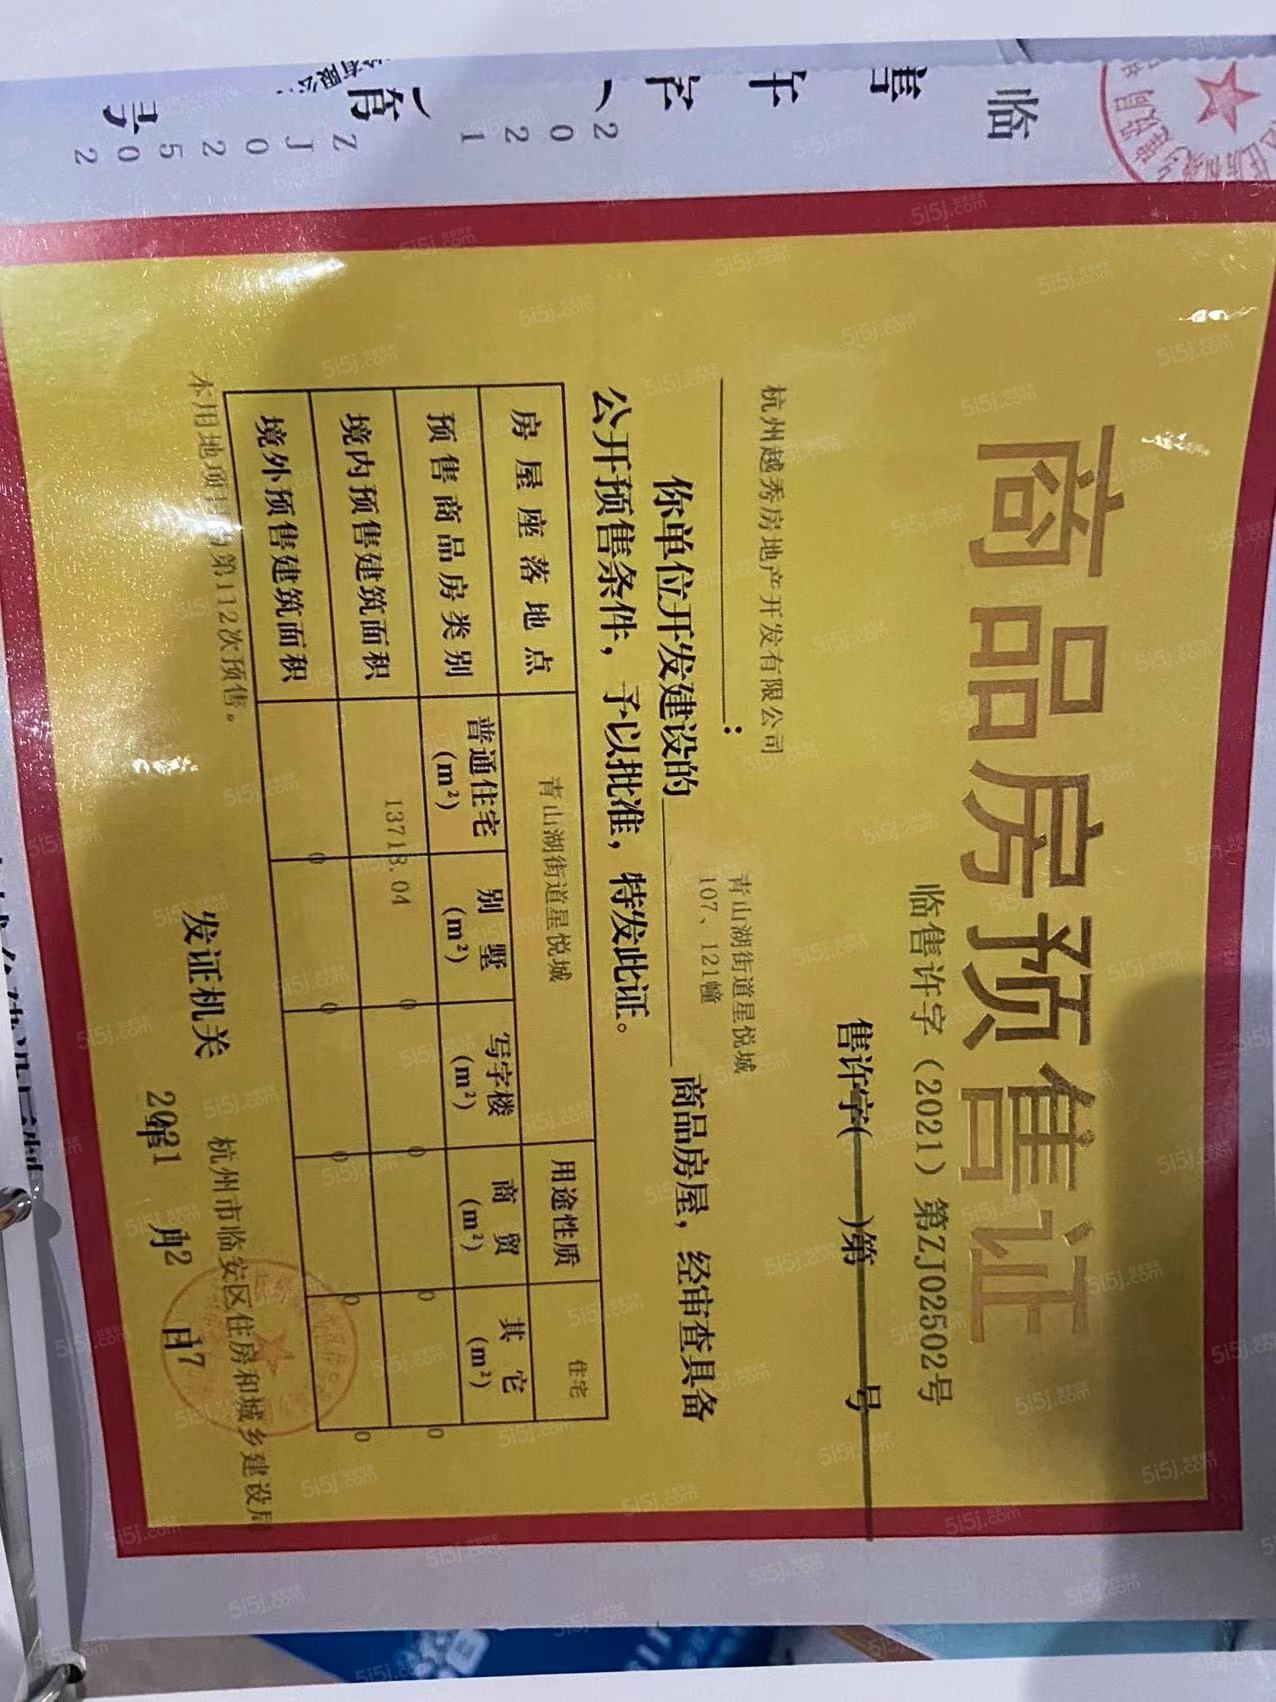 商品房预售证
临售许字（2021）第ZJ02502号
售许字( )第 号
杭州越秀房地产开发有限公司
：
青山湖街道星悦城
107、121幢
你单位开发建设的 商品房屋，经审查具备
公开预售条件，予以批准，特发此证。
房屋座落地点 青山湖街道星悦城 用途性质 住宅
预售商品房类别 普通住宅(m²) 别墅(m²) 写字楼(m²) 商贸(m²) 其它(m²)
境内预售建筑面积 13713.04 0 0 0 0
境外预售建筑面积 0 0 0 0 0
第112次预售。
发证机关 杭州市临安区住房和城乡建设局
2021年 月2 日7
临
2021
ZJ02502
号
5i5j.com